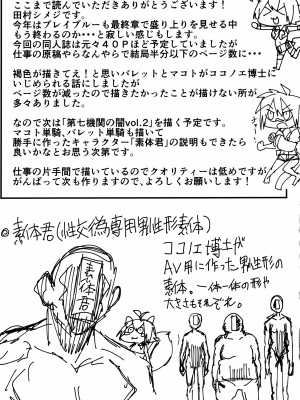 ここまで読んでいただきありがとうございます!
田村シメジです。
今年はブレイブルーも最終章で盛り上りを見せる中
もう終わるのか・・・と寂しい感じもします。
今回の同人誌は元々40Pほど予定していましたが
仕事の原稿やらなんやらで結局半分以下のページ数に・・・
褐色が描きてえ!と思いバレットとマコトがココノエ博士に
いじめられる話にしましたが
ページ数が減ったので描きたかったことが描けていない所が
多々ありました。
なので次は「第七機関の闇vol.2」を描く予定です。
マコト単騎、バレット単騎も描いて
勝手に作ったキャラクター「素体君」の説明もできたら
良いかなとお思う次第です。
仕事の片手間で描いているのでクオリティーは低めですが
がんばって次も作りますので、よろしくお願いします!
◎素体君(性交偽専用男性形素体)
素体君
ココノエ博士が
AV用に作った男性形の
素体。一体一体の形や
大きさもそれぞれ。